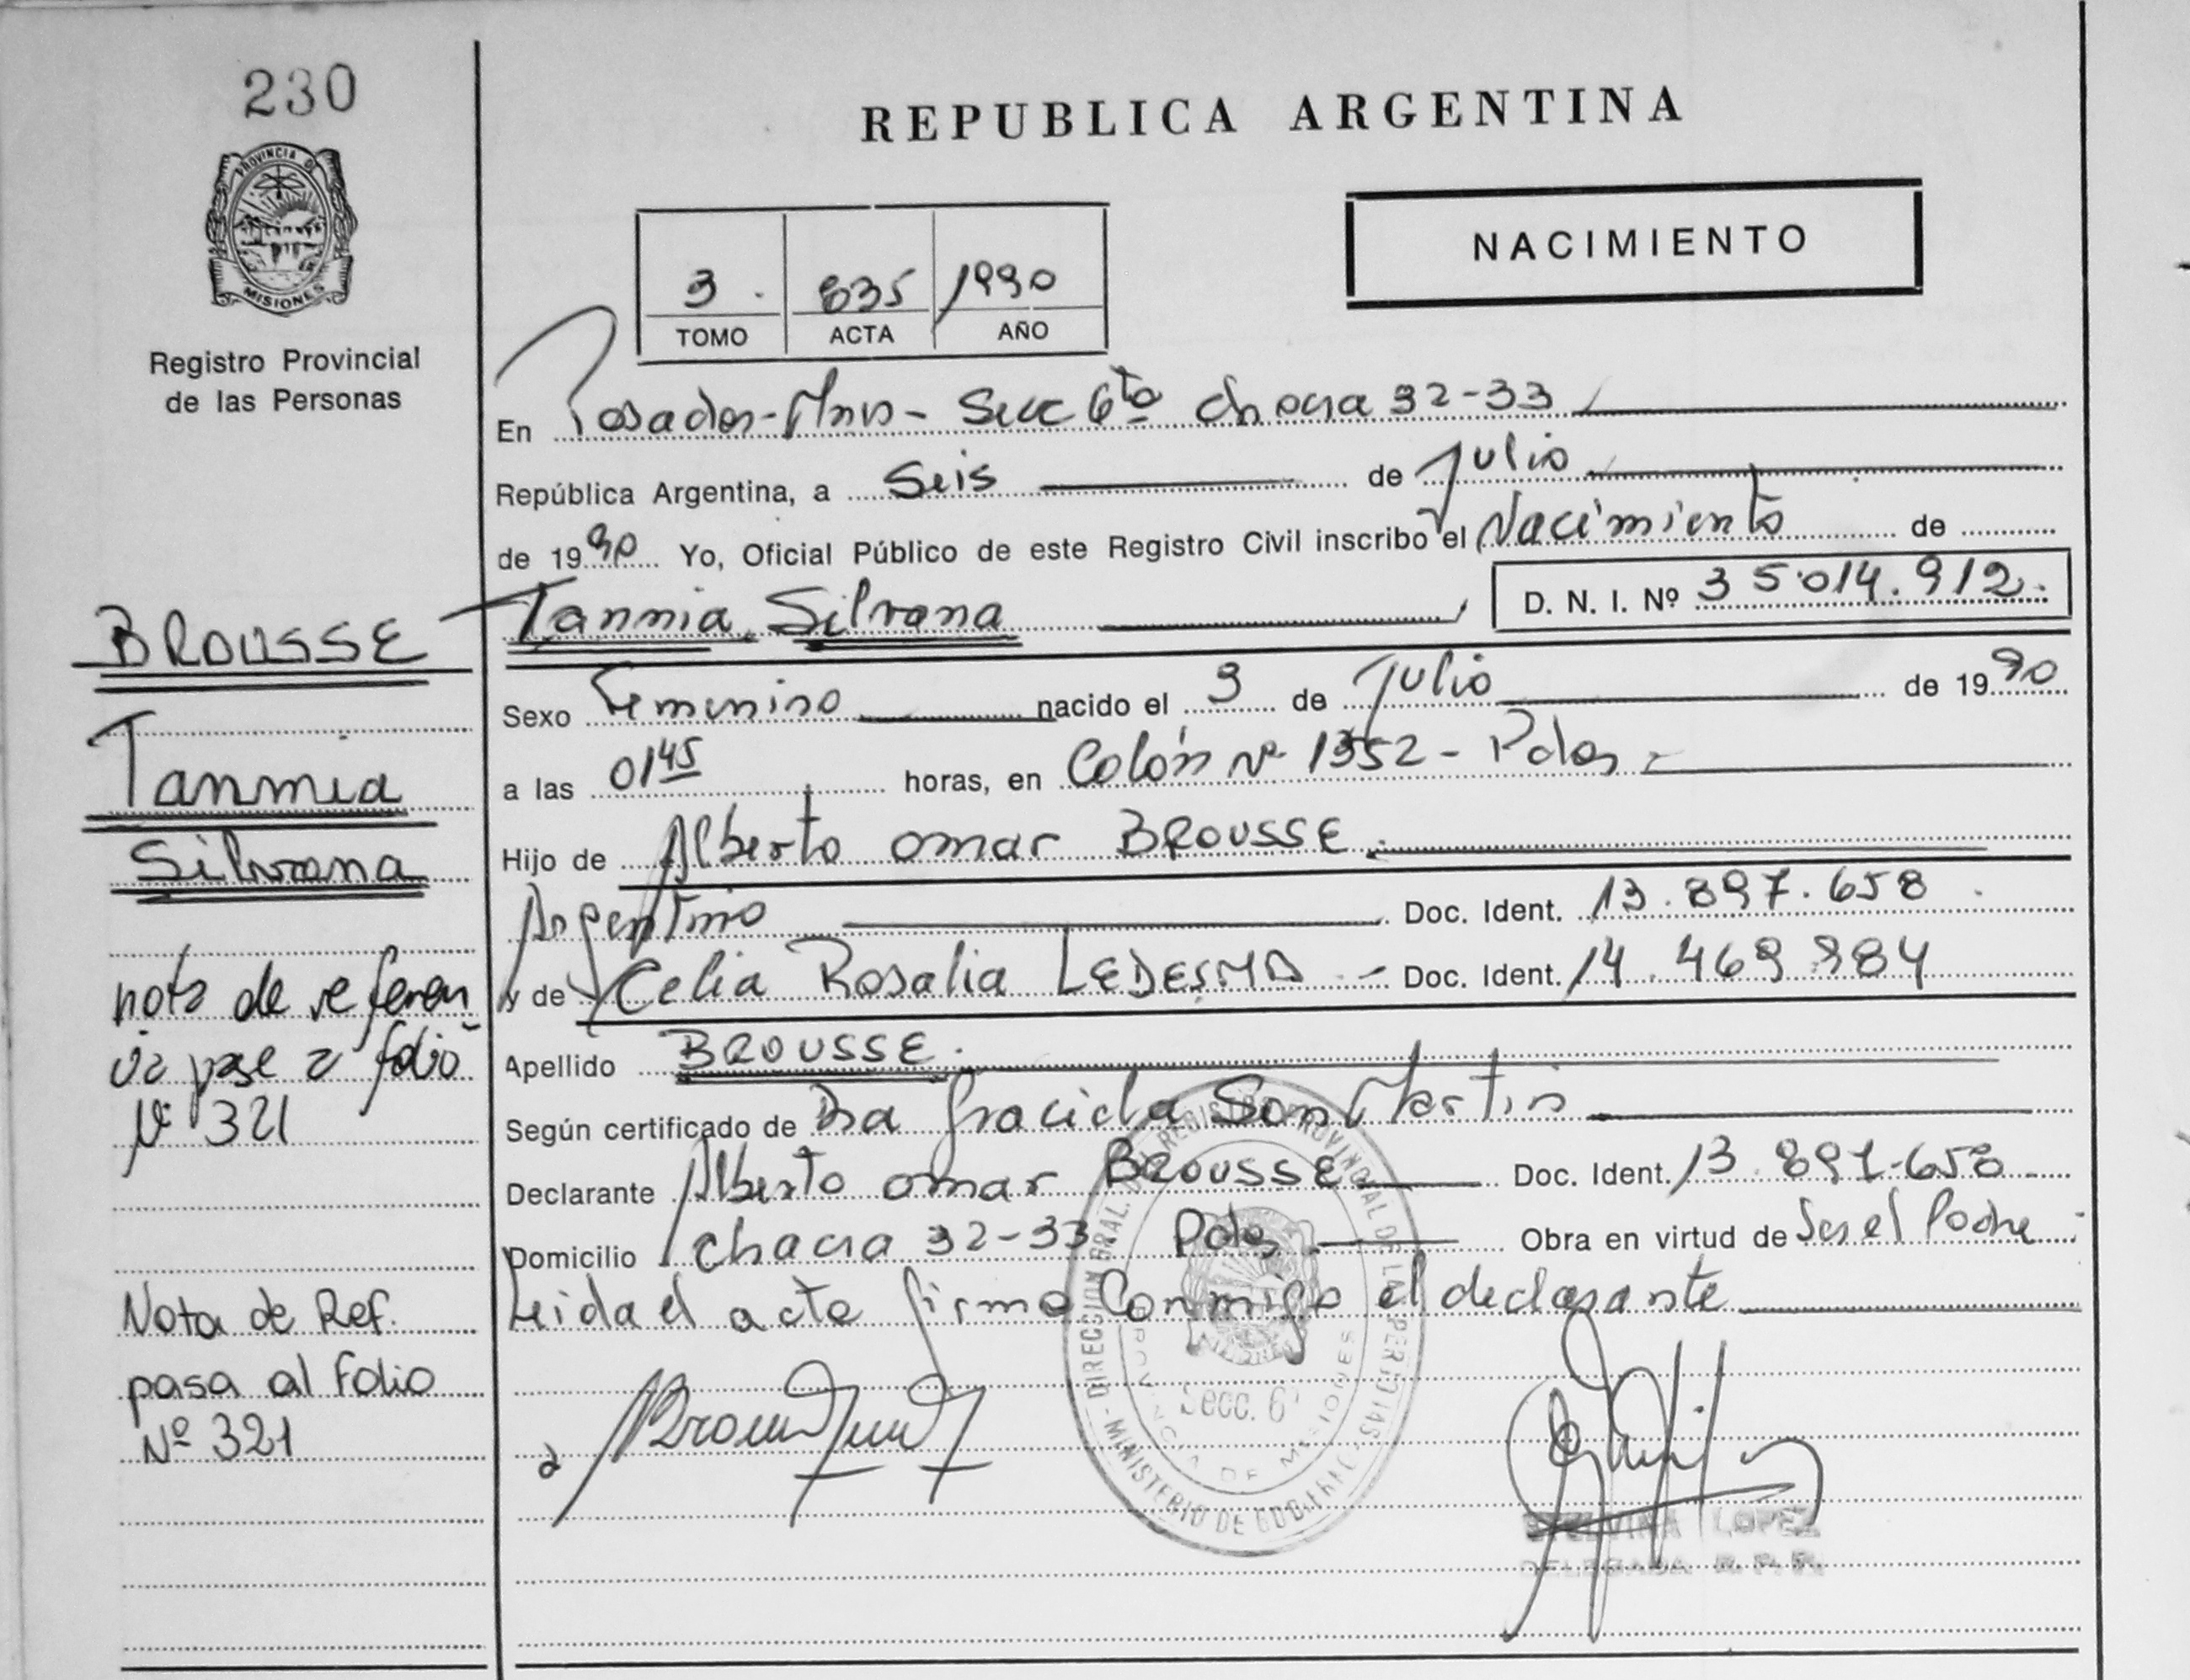 230
PROVINCIA DE
MISIONES
Registro Provincial
de las Personas
REPUBLICA ARGENTINA
NACIMIENTO
3 835 1990
TOMO ACTA AÑO
En Posadas-Mnes- Secc 6ta chacra 32-33
República Argentina, a Seis de Julio
de 1990 Yo, Oficial Público de este Registro Civil inscribo el Nacimiento de
Tannia Silvana D. N. I. Nº 35.014.912.
Sexo Femenino nacido el 3 de Julio de 1990
a las 0145 horas, en Colón Nº 1352 - Pdas
Hijo de Alberto omar BROUSSE
Argentino Doc. Ident. 13.897.658
y de Celia Rosalia LEDESMA Doc. Ident. 14.469.984
Apellido BROUSSE
Según certificado de Dra Graciela San Martin
Declarante Alberto omar BROUSSE Doc. Ident. 13.897.658
Domicilio chacra 32-33 Pdas Obra en virtud de Ser el Padre
Leida el acta firma Conmigo el declarante
BROUSSE
Tannia
Silvana
nota de referen
cia pase a folio
Nº 321
Nota de Ref.
pasa al Folio
Nº 321
DIRECCION GRAL. DEL REGISTRO PROVINCIAL DE LAS PERSONAS - MINISTERIO DE GOBIERNO
PROVINCIA DE MISIONES
Secc. 6ª
LOPEZ
DELEGADA R. P. P.